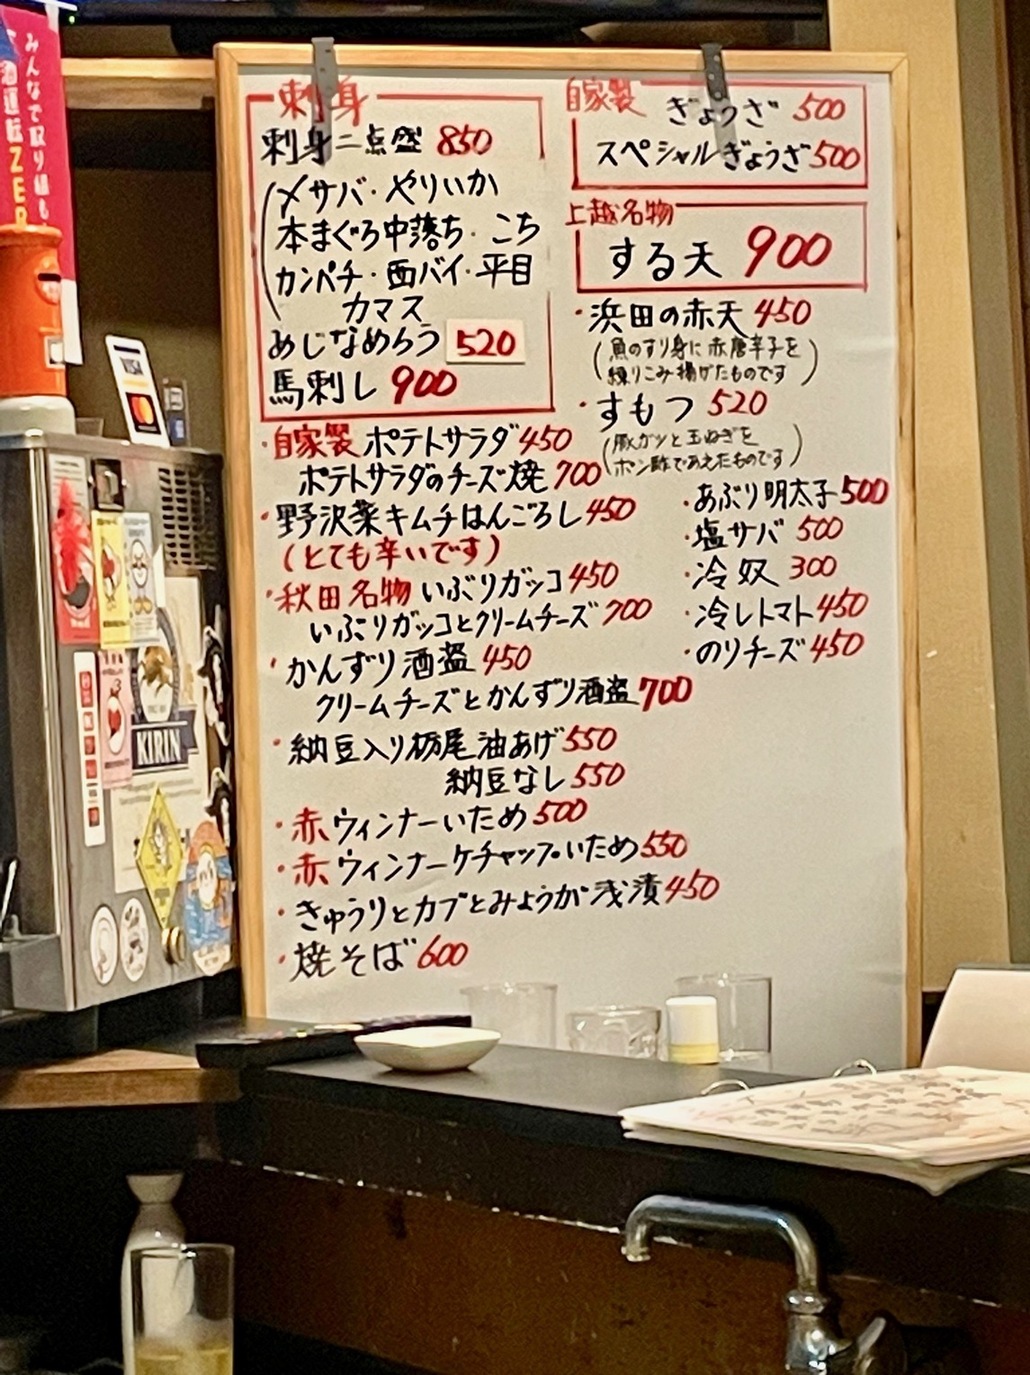 みんなで取り組も
酒運転ZER
刺身
刺身二点盛 850
〆サバ・やりいか
本まぐろ中落ち・こち
カンパチ・西バイ・平目
カマス
めじなめろう 520
馬刺し 900
・自家製 ポテトサラダ 450
ポテトサラダのチーズ焼 700
・野沢菜キムチはんごろし 450
(とても辛いです)
・秋田名物 いぶりガッコ 450
いぶりガッコとクリームチーズ 700
・かんずり酒盗 450
クリームチーズとかんずり酒盗 700
・納豆入り栃尾油あげ 550
納豆なし 550
・赤ウィンナーいため 500
・赤ウィンナーケチャップいため 550
・きゅうりとカブとみょうが浅漬 450
・焼そば 600
自家製 ぎょうざ 500
スペシャルぎょうざ 500
上越名物
する天 900
・浜田の赤天 450
(魚のすり身に赤唐辛子を
練りこみ揚げたものです)
・すもつ 520
(豚ガツと玉ねぎを
ポン酢であえたものです)
・あぶり明太子 500
・塩サバ 500
・冷奴 300
・冷しトマト 450
・のりチーズ 450
VISA
KIRIN